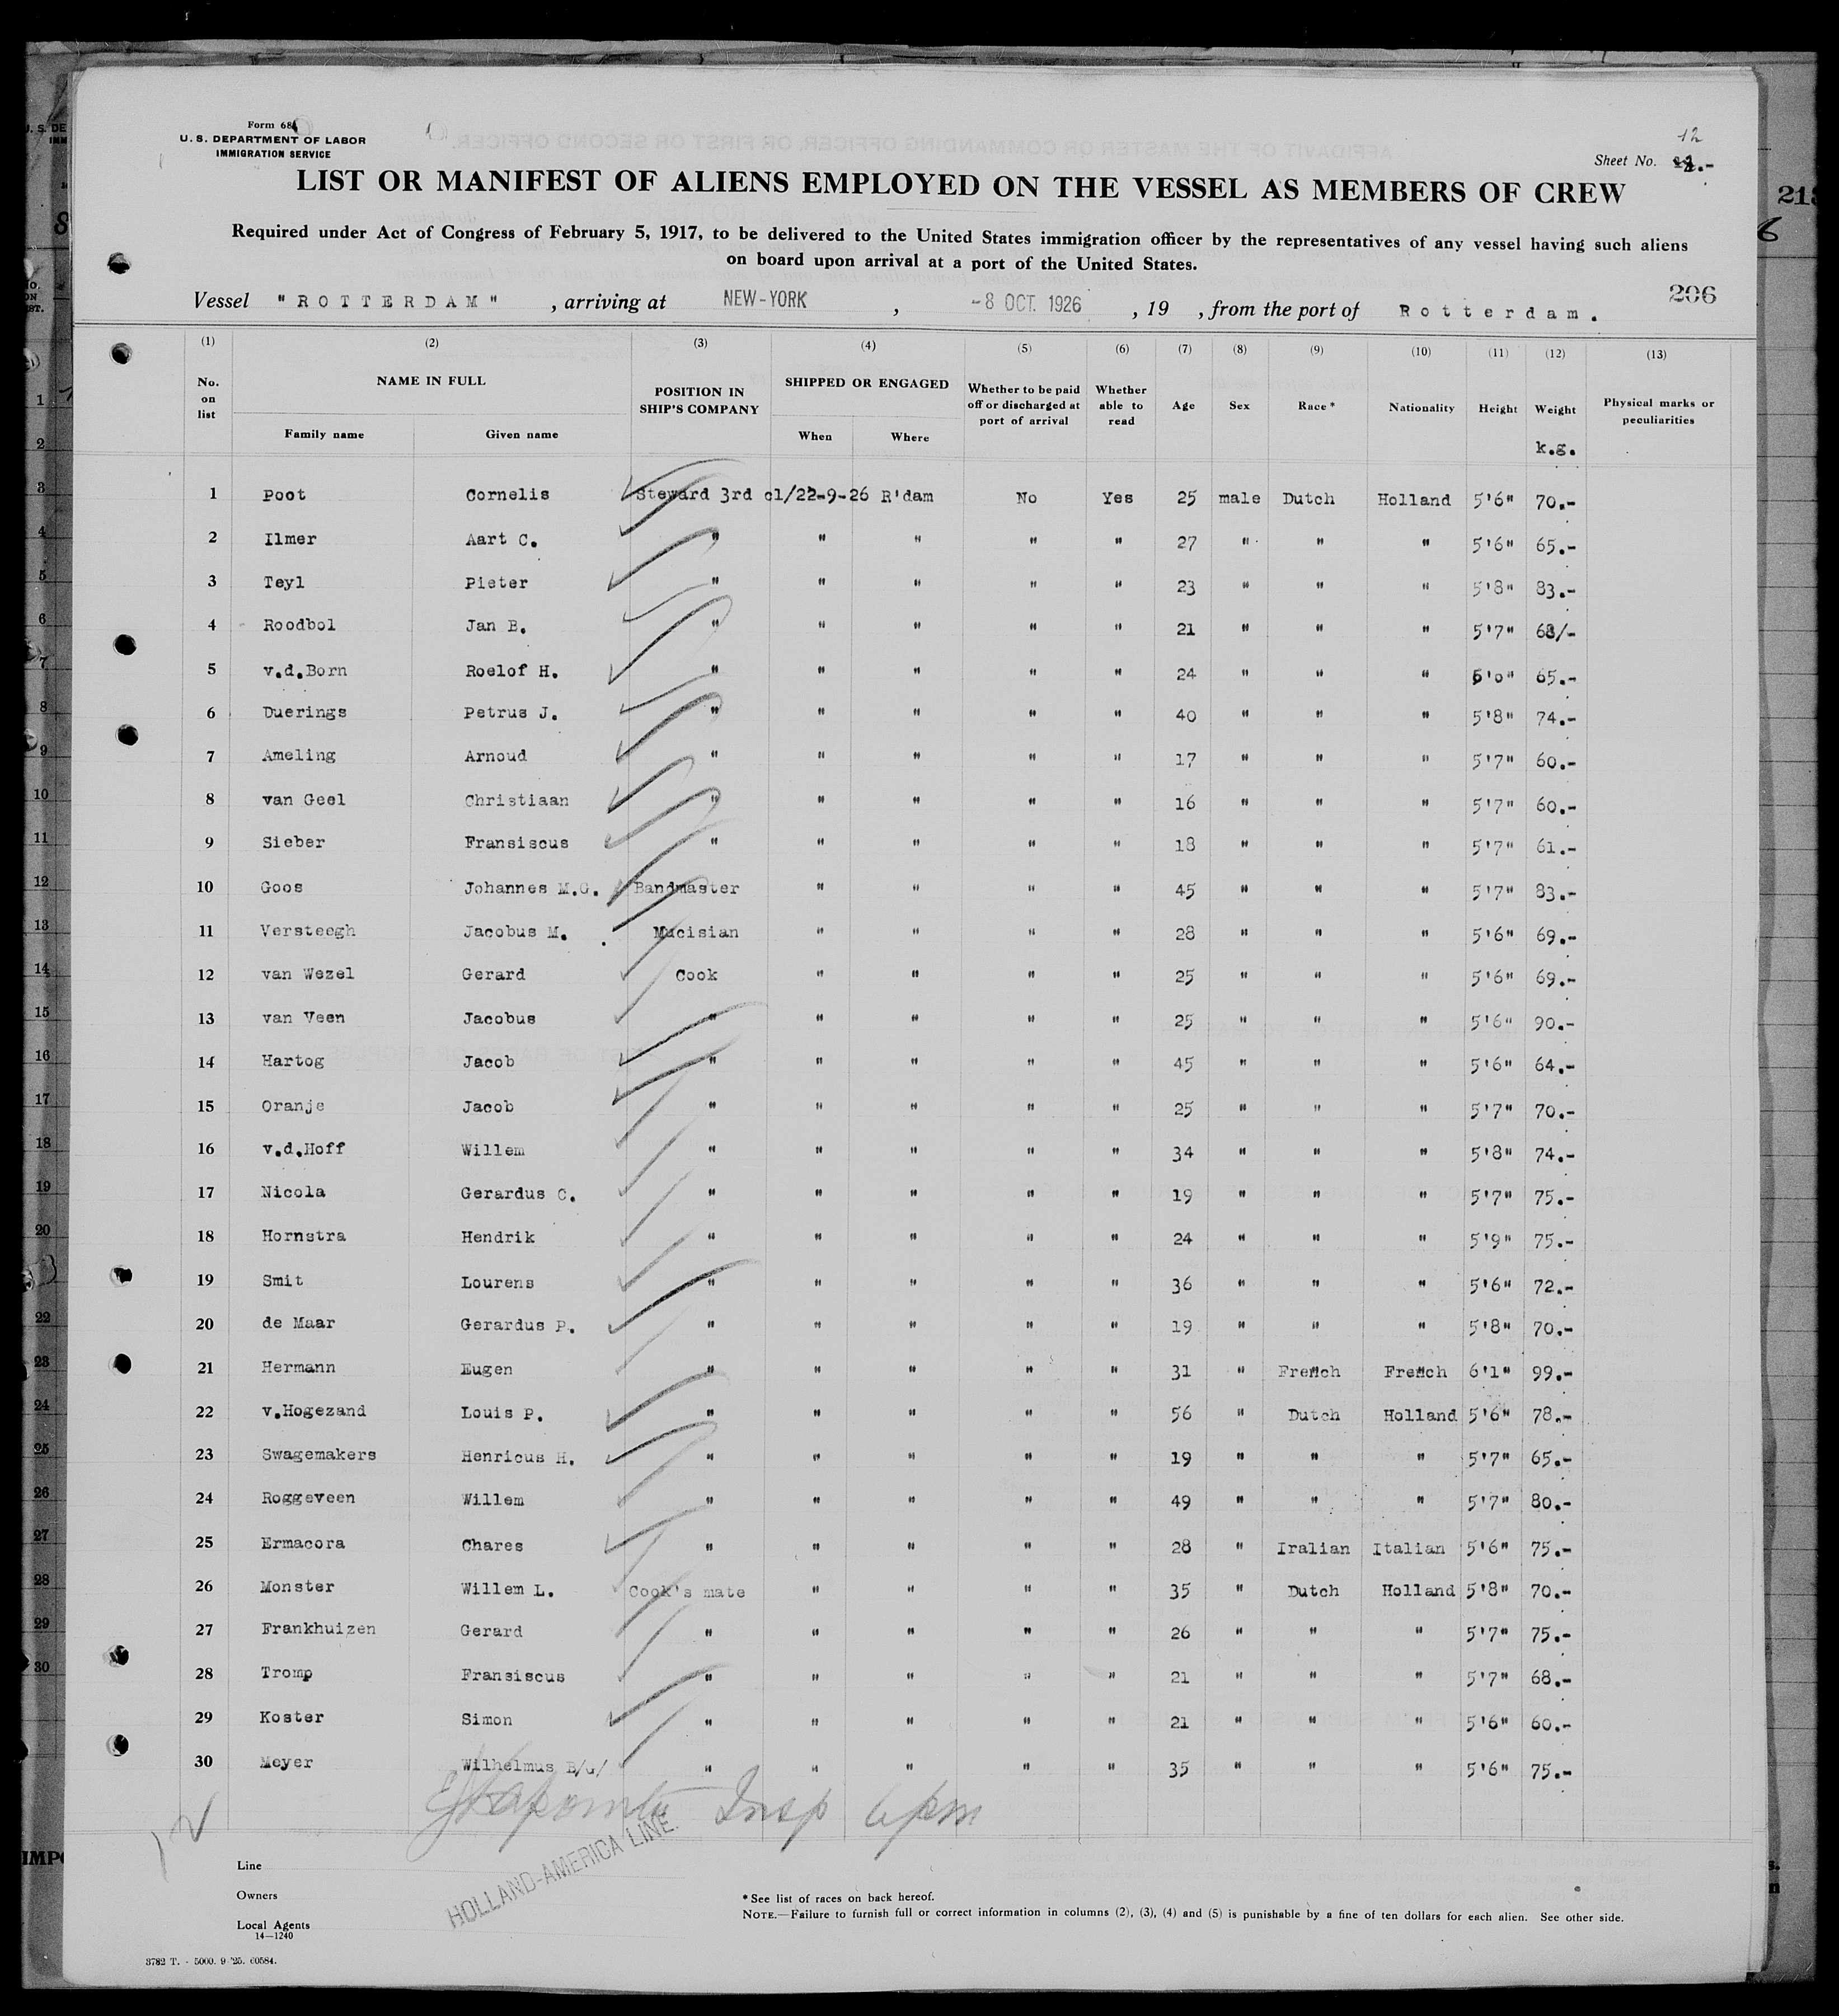 Form 68
U. S. DEPARTMENT OF LABOR
IMMIGRATION SERVICE
12
Sheet No.
LIST OR MANIFEST OF ALIENS EMPLOYED ON THE VESSEL AS MEMBERS OF CREW
Required under Act of Congress of February 5, 1917, to be delivered to the United States immigration officer by the representatives of any vessel having such aliens
on board upon arrival at a port of the United States.
206
Vessel "ROTTERDAM" , arriving at NEW-YORK , -8 OCT. 1926 , 19 , from the port of Rotterdam.
(1) (2) (3) (4) (5) (6) (7) (8) (9) (10) (11) (12) (13)
No. on list NAME IN FULL Family name Given name POSITION IN SHIP'S COMPANY SHIPPED OR ENGAGED When Where Whether to be paid off or discharged at port of arrival Whether able to read Age Sex Race* Nationality Height Weight Physical marks or peculiarities
k.g.
1 Poot Cornelis Steward 3rd cl/22-9-26 R'dam No Yes 25 male Dutch Holland 5'6" 70.-
2 Ilmer Aart C. " " " " " 27 " " " 5'6" 65.-
3 Teyl Pieter " " " " " 23 " " " 5'8" 83.-
4 Roodbol Jan B. " " " " " 21 " " " 5'7" 68/-
5 v.d.Born Roelof H. " " " " " 24 " " " 65.-
6 Duerings Petrus J. " " " " " 40 " " " 5'8" 74.-
7 Ameling Arnoud " " " " " 17 " " " 5'7" 60.-
8 van Geel Christiaan " " " " " 16 " " " 5'7" 60.-
9 Sieber Fransiscus " " " " " 18 " " " 5'7" 61.-
10 Goos Johannes M.G. Bandmaster " " " " 45 " " " 5'7" 83.-
11 Versteegh Jacobus M. Mucisian " " " " 28 " " " 5'6" 69.-
12 van Wezel Gerard Cook " " " " 25 " " " 5'6" 69.-
13 van Veen Jacobus " " " " " 25 " " " 5'6" 90.-
14 Hartog Jacob " " " " " 45 " " " 5'6" 64.-
15 Oranje Jacob " " " " " 25 " " " 5'7" 70.-
16 v.d.Hoff Willem " " " " " 34 " " " 5'8" 74.-
17 Nicola Gerardus C. " " " " " 19 " " " 5'7" 75.-
18 Hornstra Hendrik " " " " " 24 " " " 5'9" 75.-
19 Smit Lourens " " " " " 36 " " " 5'6" 72.-
20 de Maar Gerardus P. " " " " " 19 " " " 5'8" 70.-
21 Hermann Eugen " " " " " 31 " French French 6'1" 99.-
22 v.Hogezand Louis P. " " " " " 56 " Dutch Holland 5'6" 78.-
23 Swagemakers Henricus H. " " " " " 19 " " " 5'7" 65.-
24 Roggeveen Willem " " " " " 49 " " " 5'7" 80.-
25 Ermacora Chares " " " " " 28 " Iralian Italian 5'6" 75.-
26 Monster Willem L. Cook's mate " " " " 35 " Dutch Holland 5'8" 70.-
27 Frankhuizen Gerard " " " " " 26 " " " 5'7" 75.-
28 Tromp Fransiscus " " " " " 21 " " " 5'7" 68.-
29 Koster Simon " " " " " 21 " " " 5'6" 60.-
30 Meyer Wilhelmus B/G/ " " " " " 35 " " " 5'6" 75.-
Insp 6pm
12
HOLLAND-AMERICA LINE.
Line
Owners
Local Agents
14—1240
*See list of races on back hereof.
NOTE.—Failure to furnish full or correct information in columns (2), (3), (4) and (5) is punishable by a fine of ten dollars for each alien. See other side.
3782 T. - 5000. 9 '25. 60584.